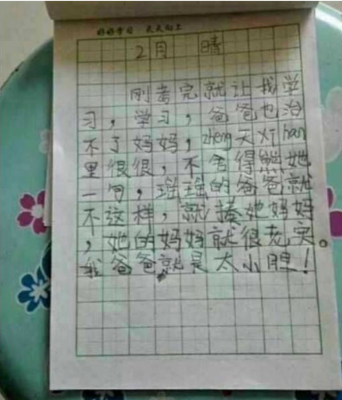 好好学习 天天向上
2月 晴
刚考完就让我学
习，学习，爸爸也治
不了妈妈，zheng天
里很很，不舍得她
一句，瑶瑶的爸爸就
不这样，就揍她妈妈
，她的妈妈就很老实。
我爸爸就是太小胆！